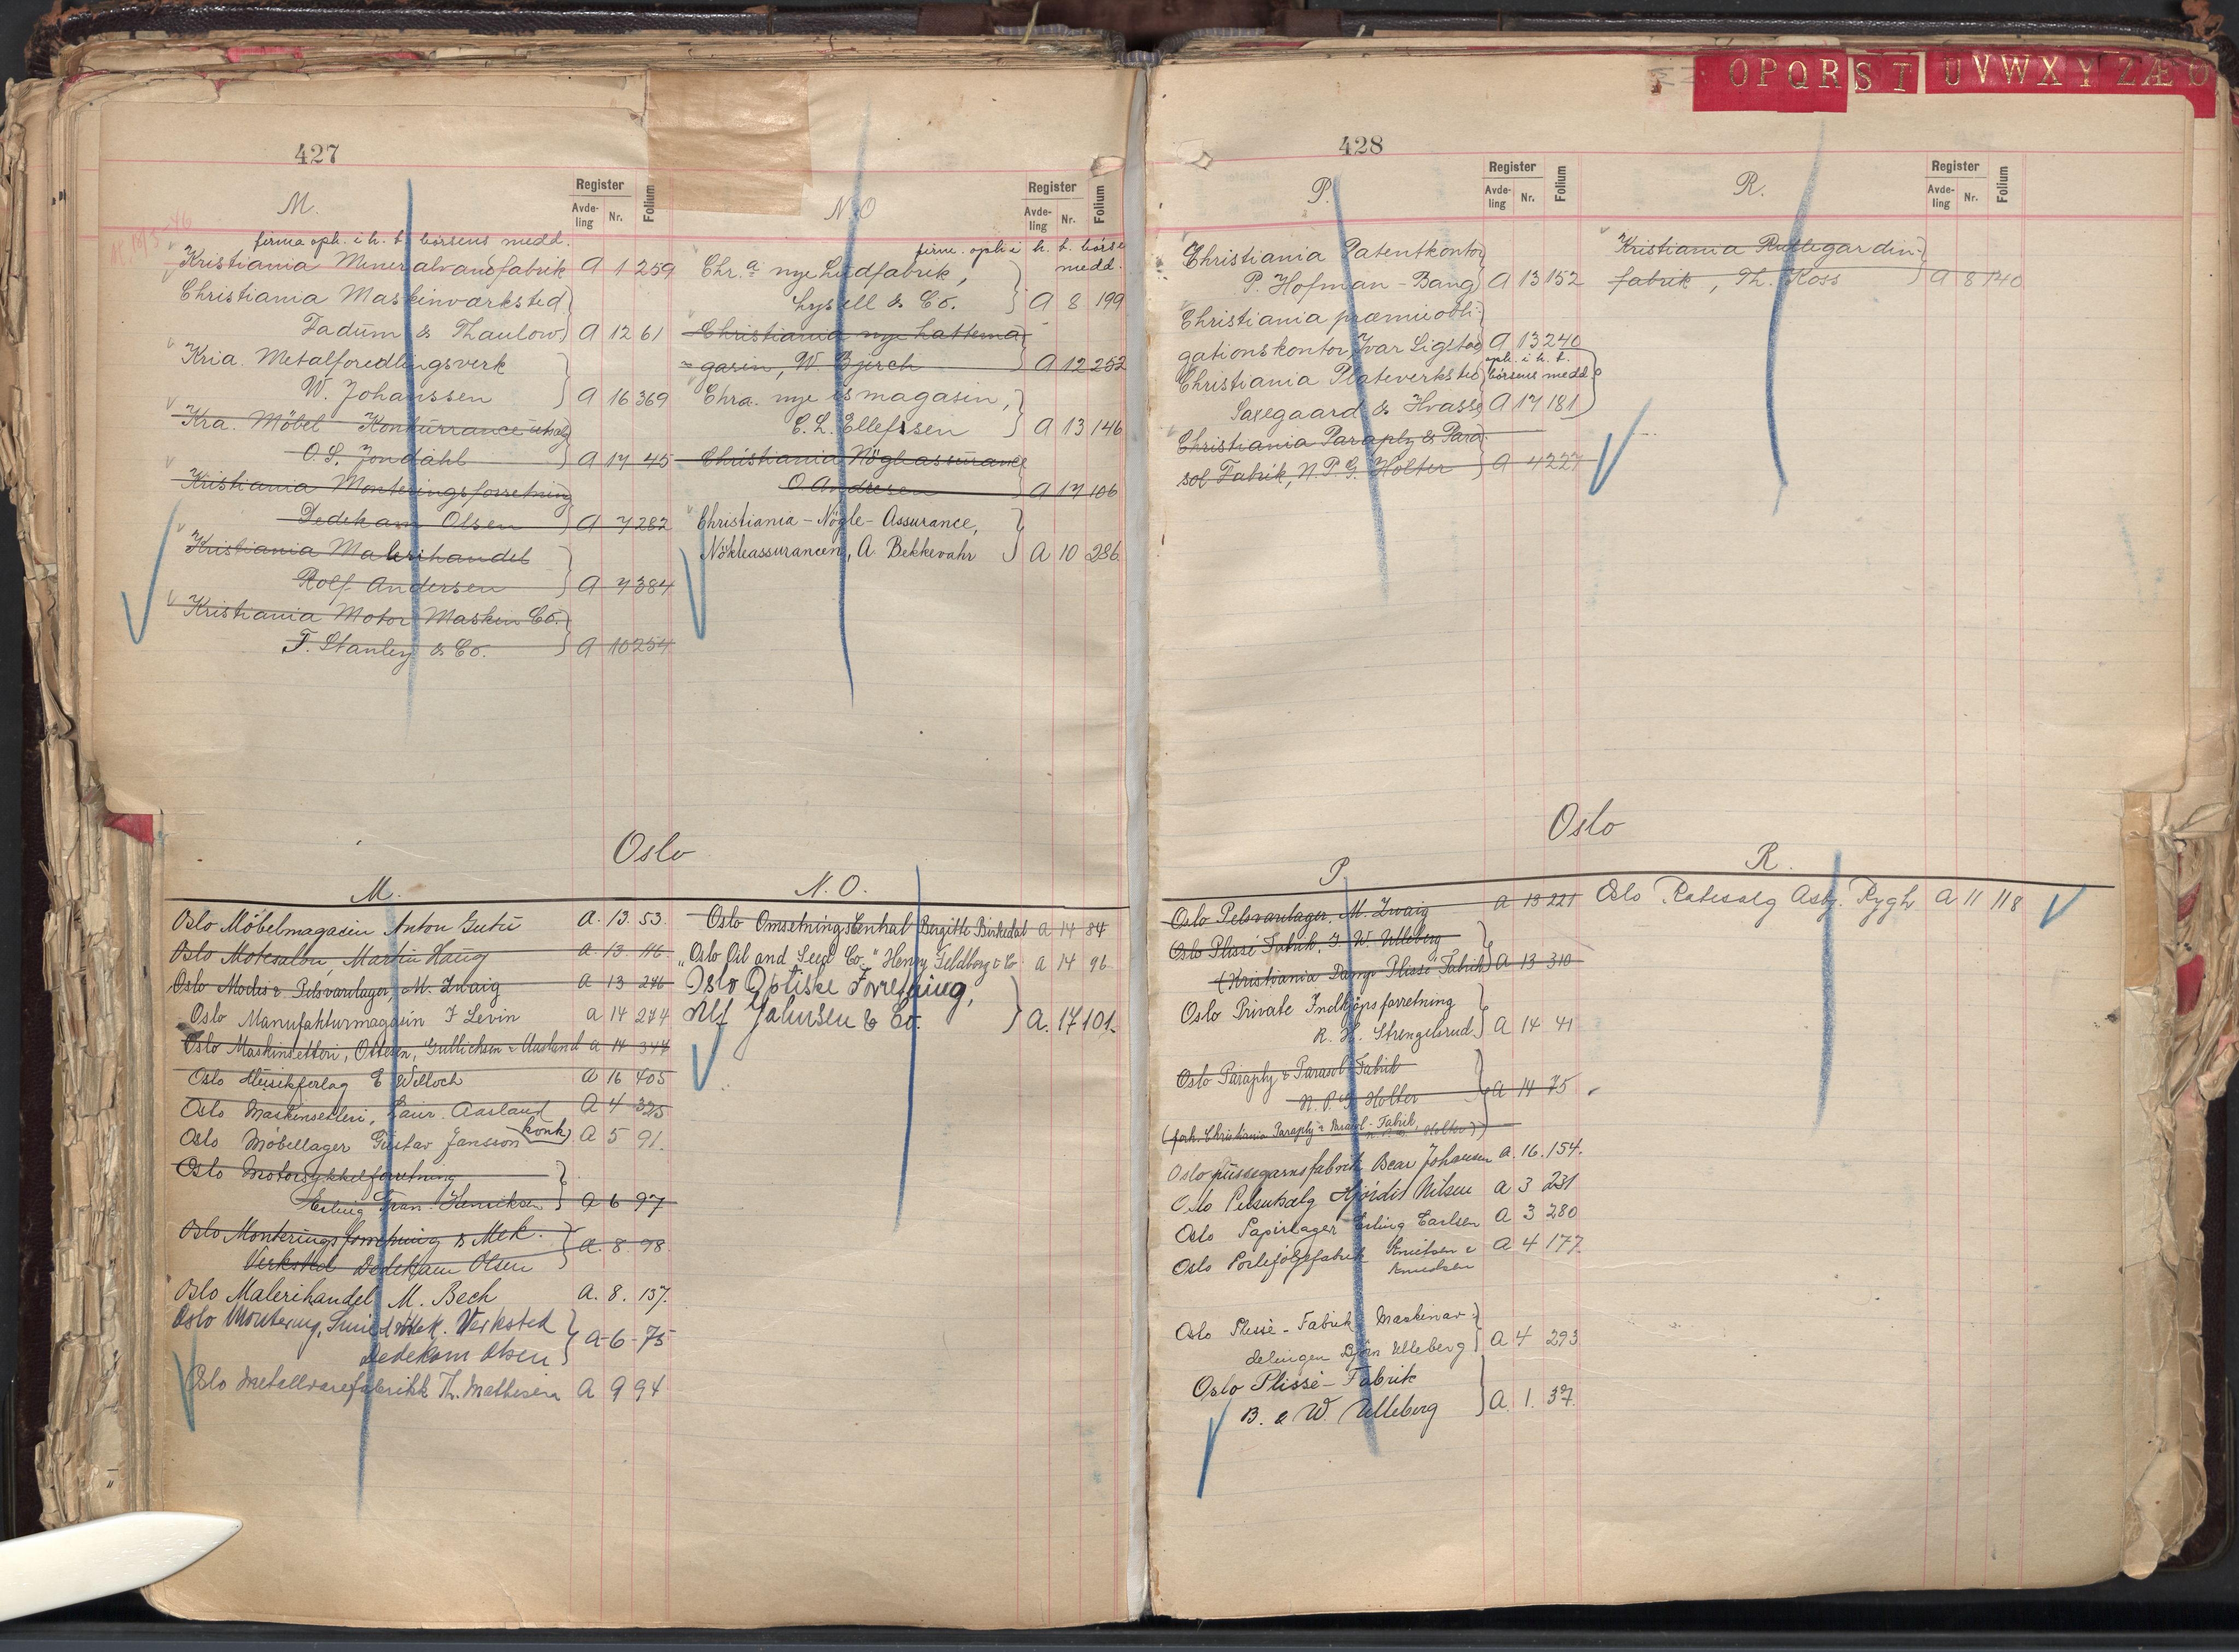 OPQRSTUVWXYZÆØ
427
M.
Register
Avde-
ling
Nr.
Folium
firma oph. i h. t. börsens medd.
Kristiania Mineralvandfabrik A 1 259
Christiania Maskinværksted
Fadum & Thaulow A 12 61
Kria. Metalforedlingsverk
W. Johanssen A 16 369
Kra. Möbel Konkurrance utsalg
O. S. Jondahl A 17 45
Kristiania Monteringsforretning
Dedekam Olsen A 7 282
Kristiania Malerihandel
Rolf Andersen A 7 384
Kristiania Motor Maskin Co.
F. Stanley & Co. A 10 254
N.O
Register
Avde-
ling
Nr.
Folium
firm. oph i h. t. börs
medd.
Chr.a nye Lædfabrik,
Lysell & Co. A 8 199
Christiania nye hattema
gasin, W. Bjerch A 12 252
Chra. nye ismagasin,
C. L. Ellefssen A 13 146
Christiania Nögleassurance
O. Andresen A 17 106
Christiania-Nögle-Assurance,
Nökleassurancen, A. Bekkevahr A 10 286
Oslo
M.
Oslo Möbelmagasin Anton Gutu A. 13. 53.
Oslo Motesalon, Martin Haug A. 13. 116.
Oslo Modes & Pelsvarelager, M. Zwaig A 13 286
Oslo Manufakturmagasin J Levin A 14 274
Oslo Maskinsetteri, Ottesen, Gullichsen & Aasland A 14 344
Oslo Musikforlag E Willoch A 16 405
Oslo Maskinsetteri, Laur. Aasland A 4 325
Oslo Möbellager Gustav Jansson (konk) A 5 91.
Oslo Motorsykkelforretning
Erling Fran. Henriksen A 6 97
Oslo Monterings forretning & Mek.
Verksted Dedekam Olsen A. 8. 98
Oslo Malerihandel M. Bech A. 8. 137.
Oslo Montering, Smie & Mek. Verksted
Dedekam Olsen A-6-75
Oslo Metallvarefabrikk Th. Mathisen A 9 94
N. O.
Oslo Omsetningssentral Bergitte Birkedal A 14 84
"Oslo Oil and Seed Co." Henry Feldborg & Co A 14 96
Oslo Optiske Forretning,
Alf Jahnsen & Co. A. 17 101.
428
P.
Register
Avde-
ling
Nr.
Folium
Christiania Patentkontor
P. Hofman-Bang A 13 152
Christiania præmieobli-
gationskontor, Ivar Ligstad A 13 240
oph. i h. t.
Christiania Plateverksted börsens medd
Saxegaard & Hvasse A 17 181
Christiania Paraply & Para-
sol Fabrik, N. P. G. Holter A 4 227
R.
Register
Avde-
ling
Nr.
Folium
Kristiania Rullegardin-
fabrik, Th. Koss A 8 140
Oslo
P.
Oslo Pelsvarelager, M. Zwaig A 13 221
Oslo Plissé Fabrik, J. W. Ulleberg
(Kristiania Damp Plisse Fabrik) A 13 310
Oslo Private Indkjöpsforretning
R. H. Strengelsrud. A 14 41
Oslo Paraply & Parasol Fabrik
N. P. G. Holter A 14 75
(forh. Christiania Paraply & Parasol-Fabrik,
Holter)
Oslo pussegarnsfabrik Bear Johansen A. 16. 154.
Oslo Pelsutsalg Hjördis Nilsen A 3 231
Oslo Papirlager Erling Carlsen A 3 280
Oslo Porteföljefabrik Knutsen &
Knudsen A 4 177.
Oslo Plissé-Fabrik Maskinav-
delingen Björn Ulleberg A 4 293
Oslo Plissé-Fabrik
B. & W. Ulleberg A. 1. 37.
R.
Oslo Ratesalg Asbj. Rygh A 11 118